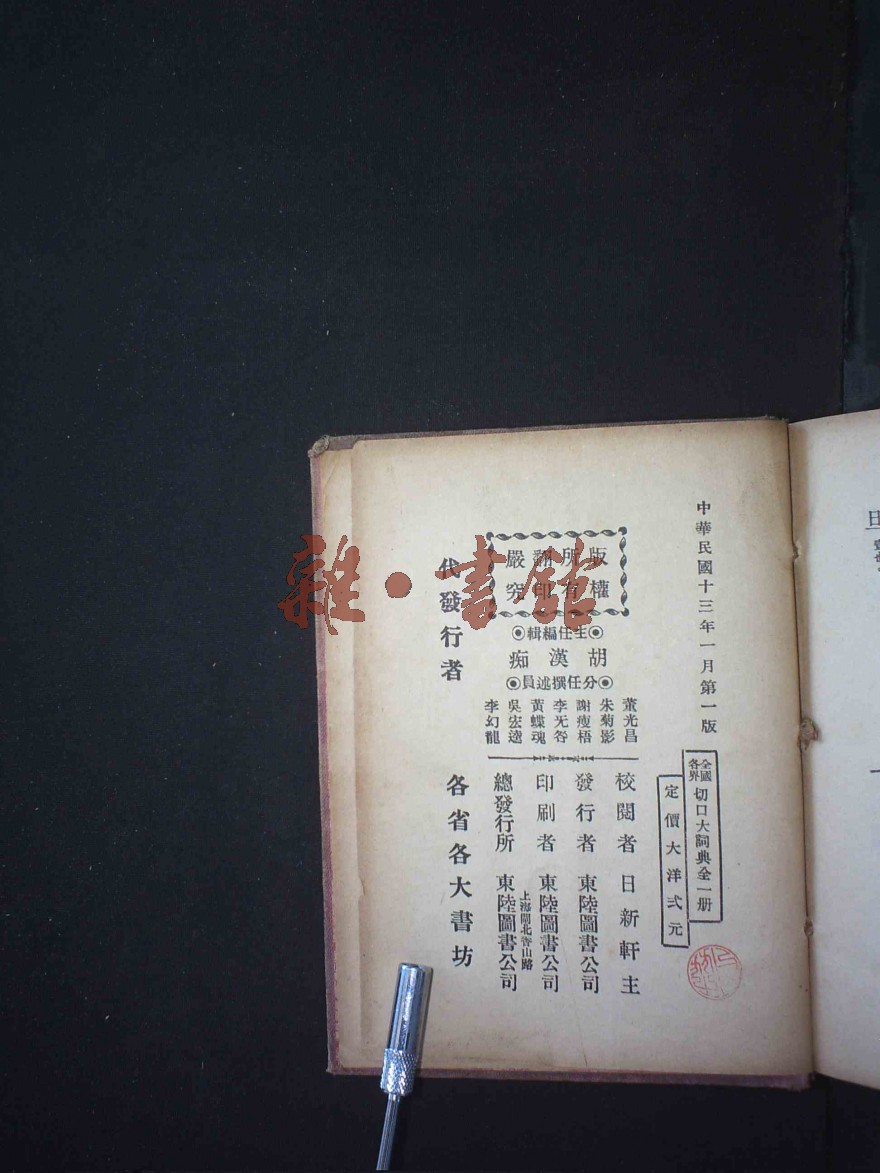 中華民國十三年一月第一版
全國各界切口大詞典全一册
定價大洋弍元
版權所有翻印嚴究
◉主任編輯◉
胡漢痴
◉分任撰述員◉
董光昌
朱菊影
謝瘦梧
李旡咎
黃蝶魂
吳宏遠
李幻龍
校閱者 日新軒主
發行者 東陸圖書公司
印刷者 東陸圖書公司
上海閘北寳山路
總發行所 東陸圖書公司
代發行者 各省各大書坊
雜·書館